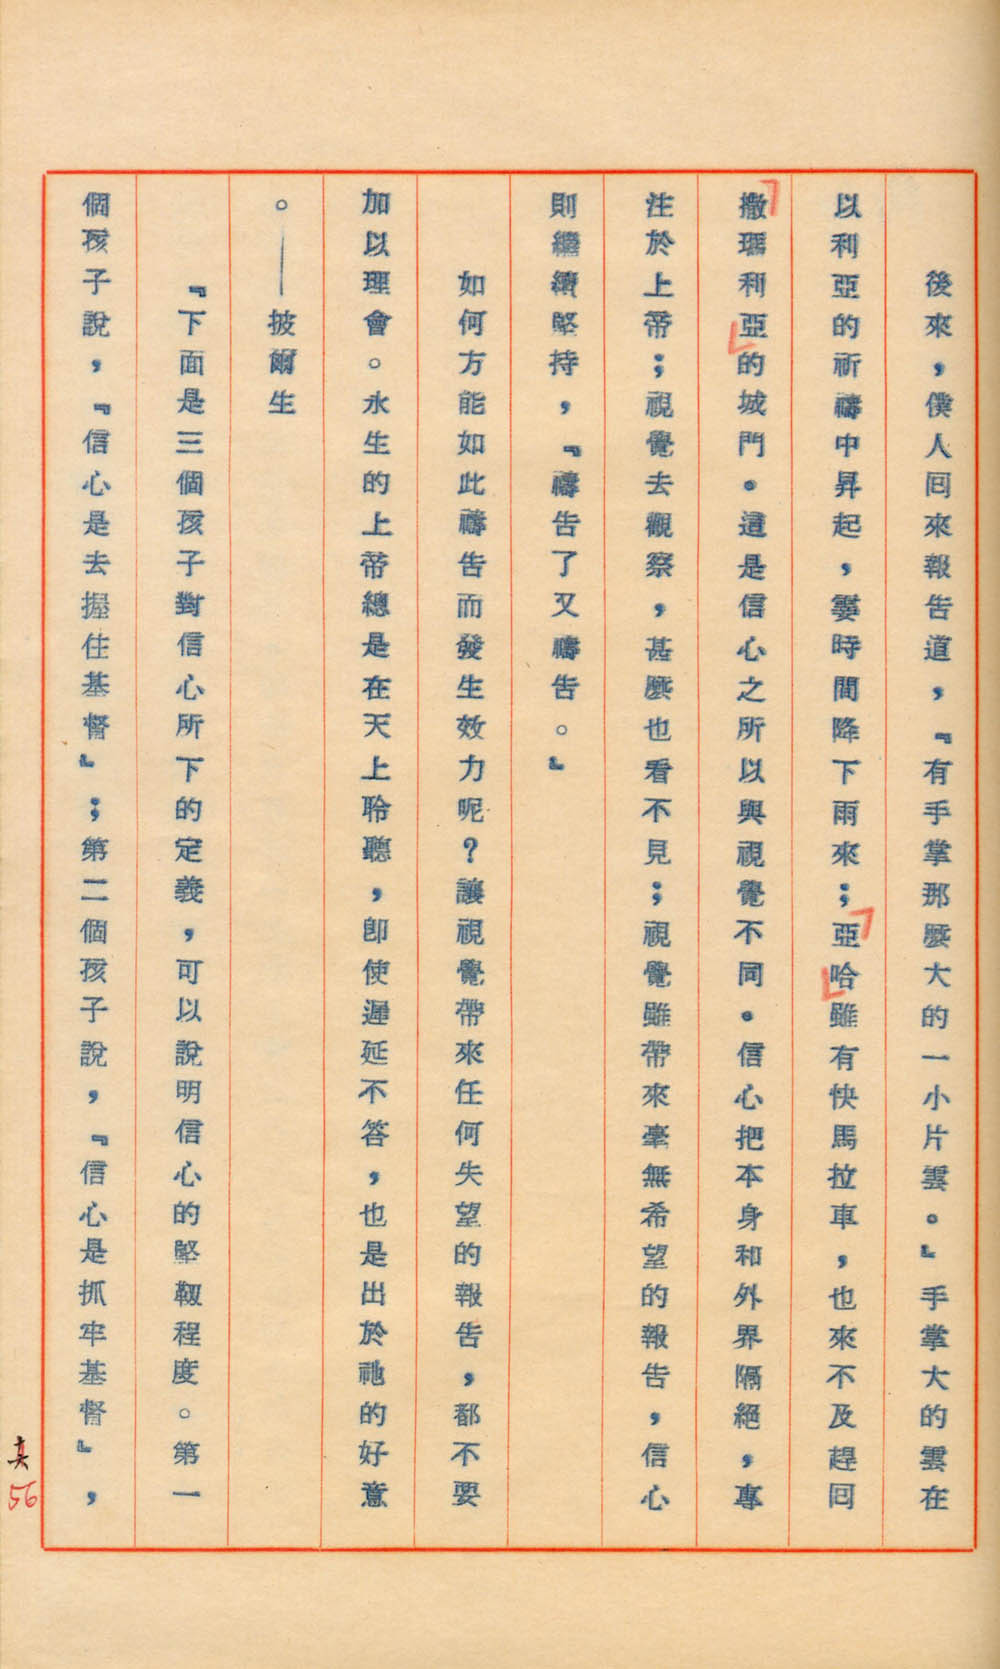 後來，僕人回來報告道，『有手掌那麼大的一小片雲。』手掌大的雲在
以利亞的祈禱中昇起，霎時間降下雨來；亞哈雖有快馬拉車，也來不及趕回
撒瑪利亞的城門。這是信心之所以與視覺不同。信心把本身和外界隔絕，專
注於上帝；視覺去觀察，甚麼也看不見；視覺雖帶來毫無希望的報告，信心
則繼續堅持，『禱告了又禱告。』
如何方能如此禱告而發生效力呢？讓視覺帶來任何失望的報告，都不要
加以理會。永生的上帝總是在天上聆聽，卽使遲延不答，也是出於祂的好意
。——披爾生
『下面是三個孩子對信心所下的定義，可以說明信心的堅韌程度。第一
個孩子說，『信心是去握住基督』；第二個孩子說，『信心是抓牢基督』，
真
56